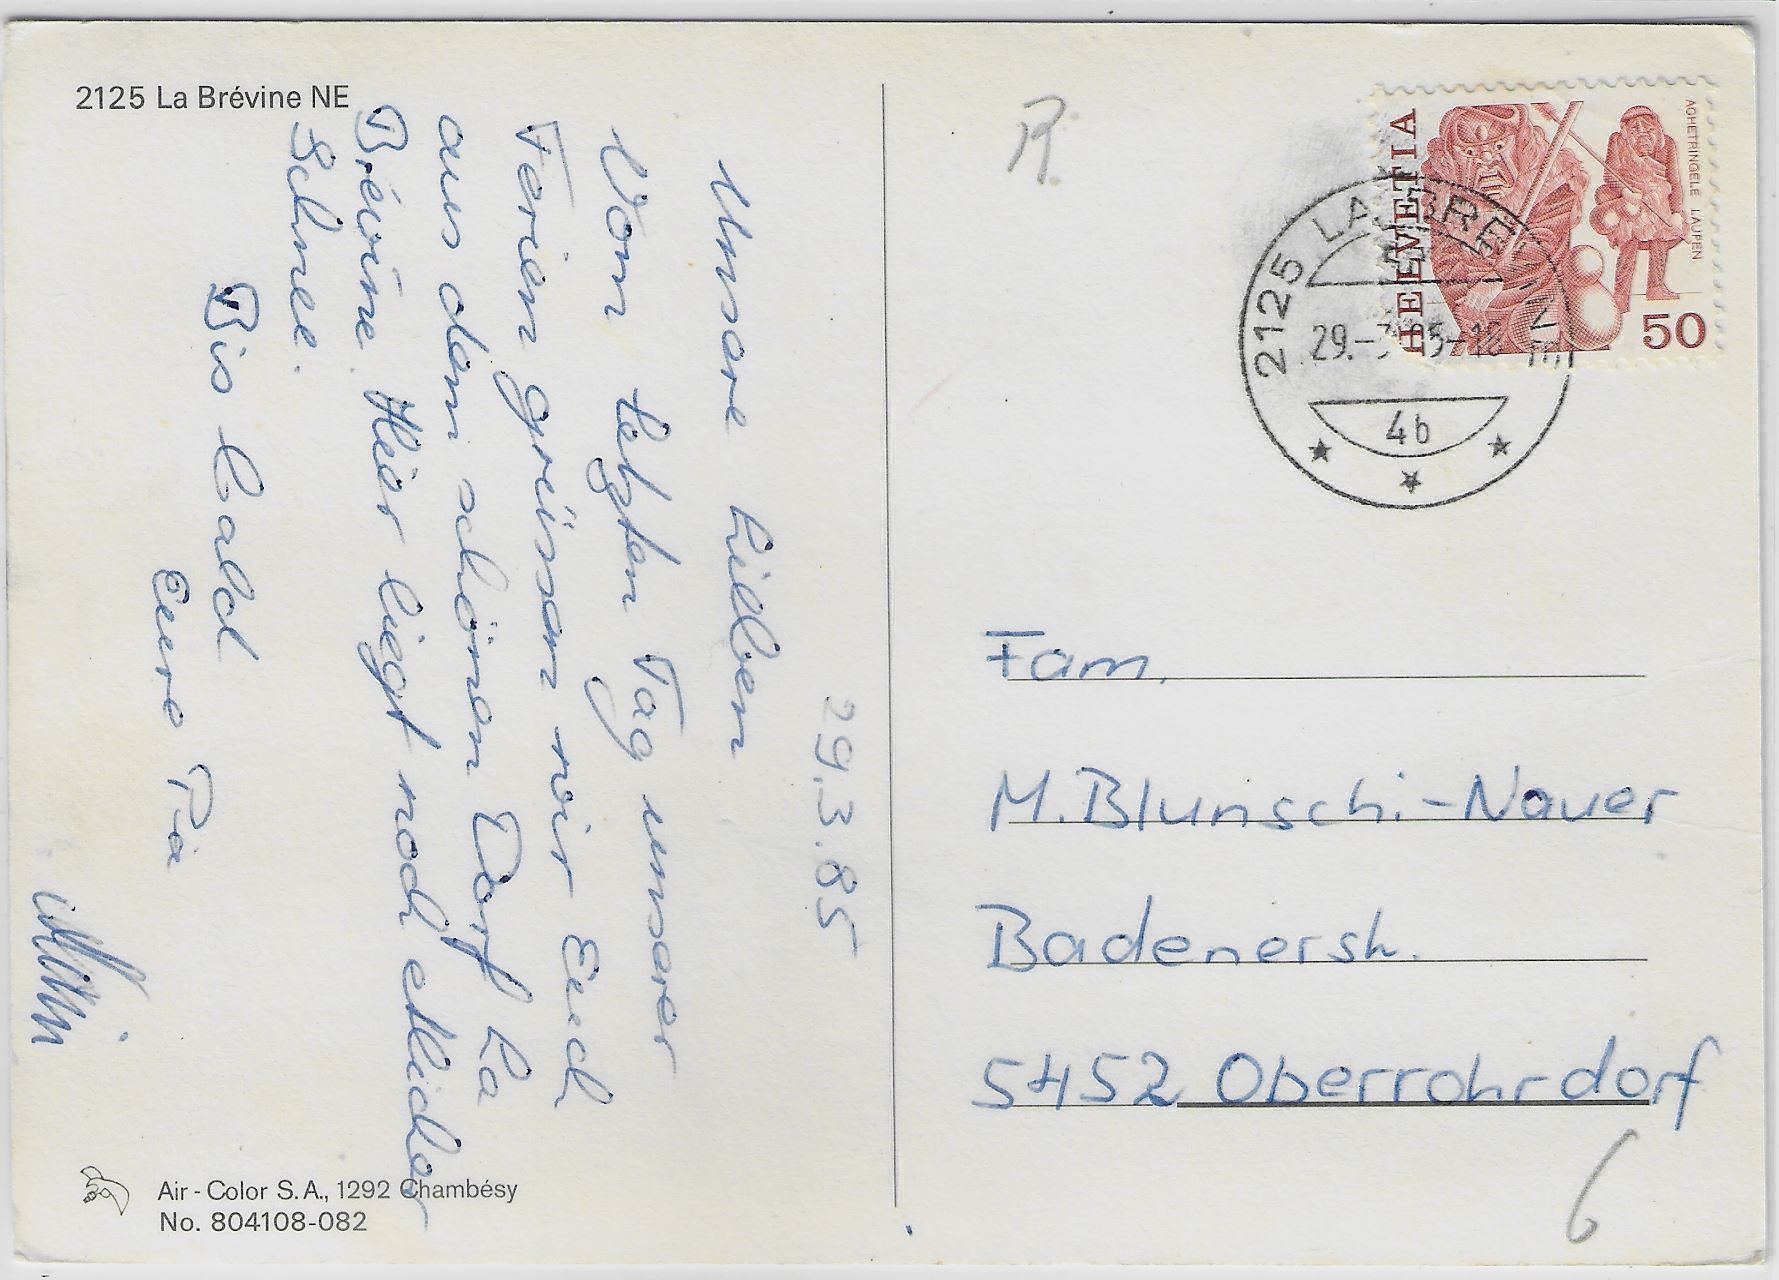 2125 La Brévine NE
29.3.85
Unsere Lieben
Vom letzten Tag unserer
Ferien grüssen wir Euch
aus dem schönen Dorf La
Brévine. Hier liegt noch
Schnee.
Bis bald
Eure
Air-Color S.A., 1292 Chambésy
No. 804108-082
R.
HELVETIA
ACHETRINGELE LAUPEN
50
2125 LA BREVINE
29.-3.85-18
4b
Fam.
M. Blunschi-Nauer
Badenerstr.
5452 Oberrohrdorf
6